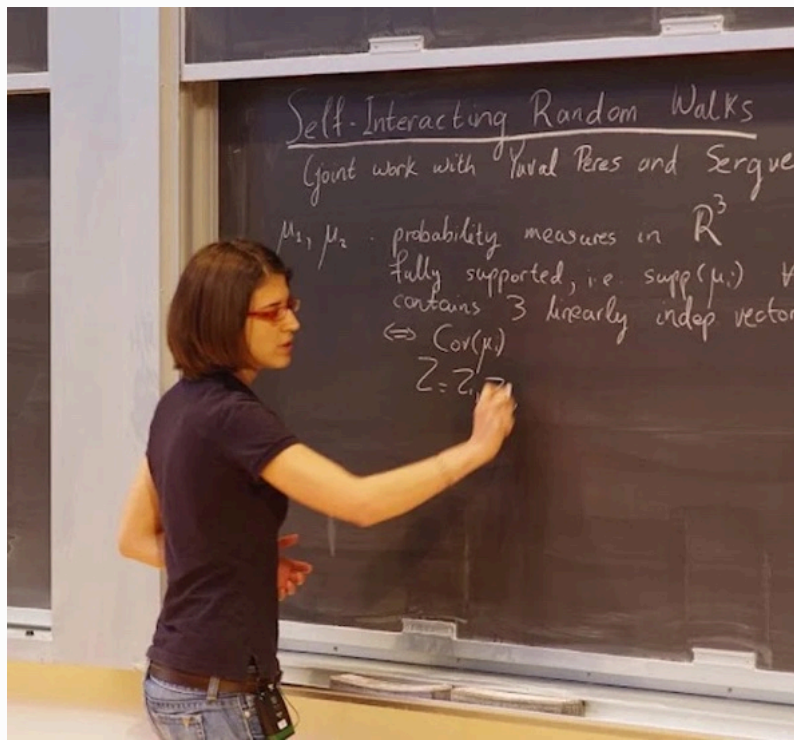 Self-Interacting Random Walks
(joint work with Yuval Peres and Sergue
μ₁, μ₂ - probability measures in ℝ³
fully supported, i.e. supp(μᵢ)
contains 3 linearly indep vector
⇔ Cov(μᵢ)
Z = Z₁,